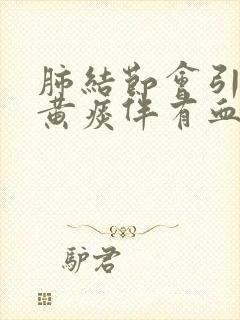 肺結節會引
黃痰伴有血
驢君